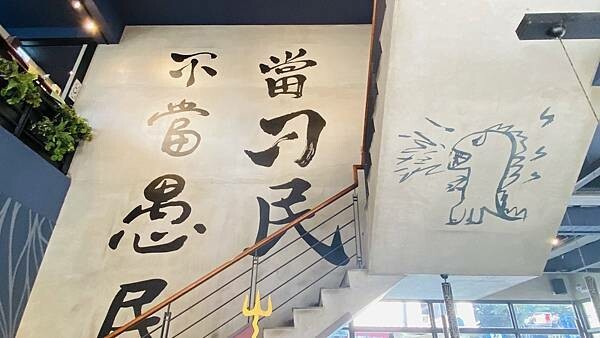 當刁民
不當愚民